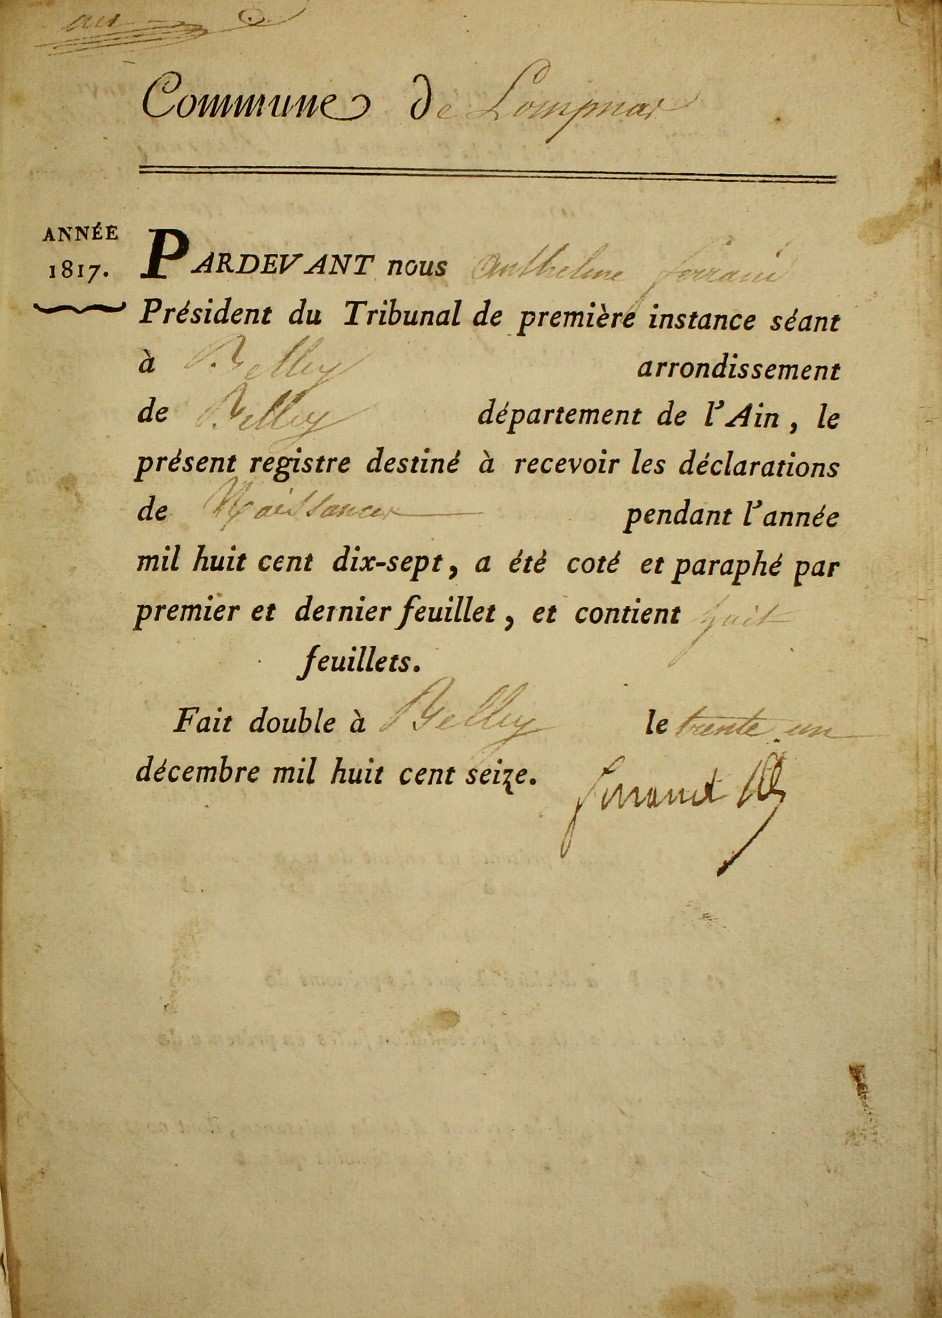 Commune de Lompnas
ANNÉE
1817.
PARDEVANT nous Anthelme
Président du Tribunal de première instance séant
à Belley arrondissement
de Belley département de l'Ain, le
présent registre destiné à recevoir les déclarations
de Naissances pendant l'année
mil huit cent dix-sept, a été coté et paraphé par
premier et dernier feuillet, et contient huit
feuillets.
Fait double à Belley le trente un
décembre mil huit cent seize.